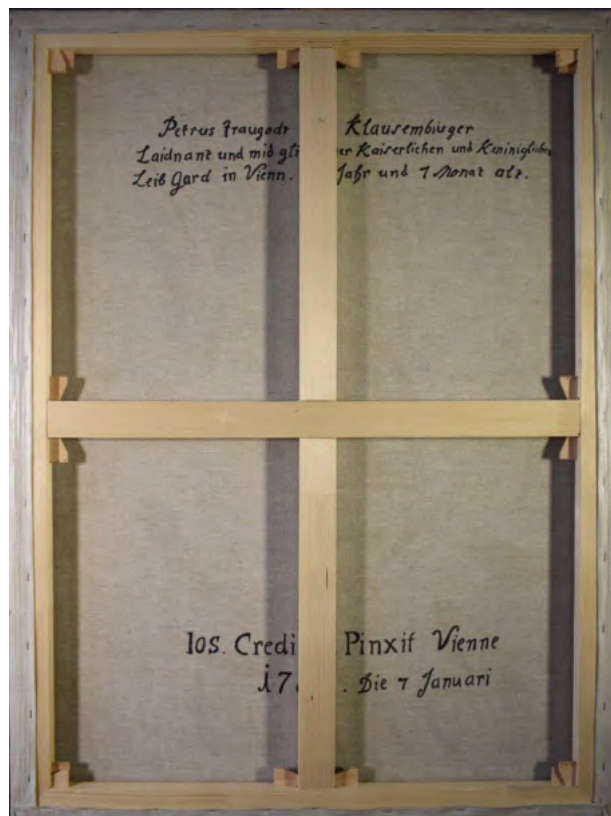 Petrus Traugodt Klausembürger
Laidnant und mid gli er Kaiserlichen und Kininiglichen
Leib Gard in Vienn. Jahr und 7 Monat alt.
Ios. Credi Pinxit Vienne
17 . Die 7 Januari